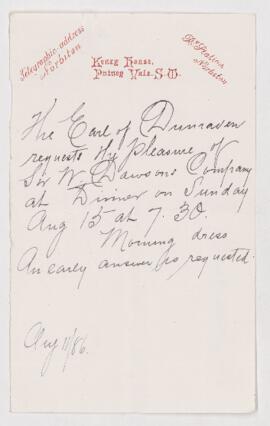 Telegraphic-address
Norbiton
Kenry House,
Putney Vale. S.W.
Ry Station
Norbiton
The Earl of Dunraven
requests the pleasure of
Sir W. Dawson's Company
at Dinner on Sunday
Aug 15 at 7.30.
Morning dress
An early answer is requested.
Aug 11/86.